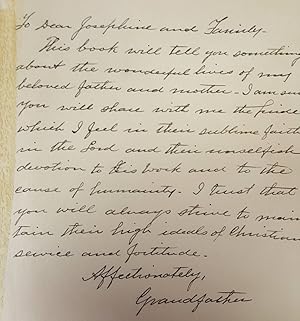 To Dear Josephine and Family-
This book will tell you something
about the wonderful lives of my
beloved father and mother - I am sure
you will share with me the pride
which I feel in their sublime faith
in the Lord and their unselfish
devotion to this work and to the
cause of humanity. I trust that
you will always strive to main
tain their high ideals of Christian
service and fortitude.
Affectionately,
Grandfather